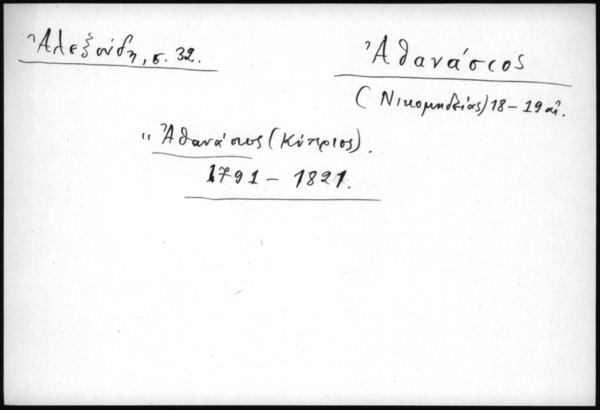 Ἀλεξούδη, σ. 32.
Ἀθανάσιος
(Νικομηδείας) 18 – 19 αἰ.
"Ἀθανάσιος (Κύπριος).
1791 – 1821.